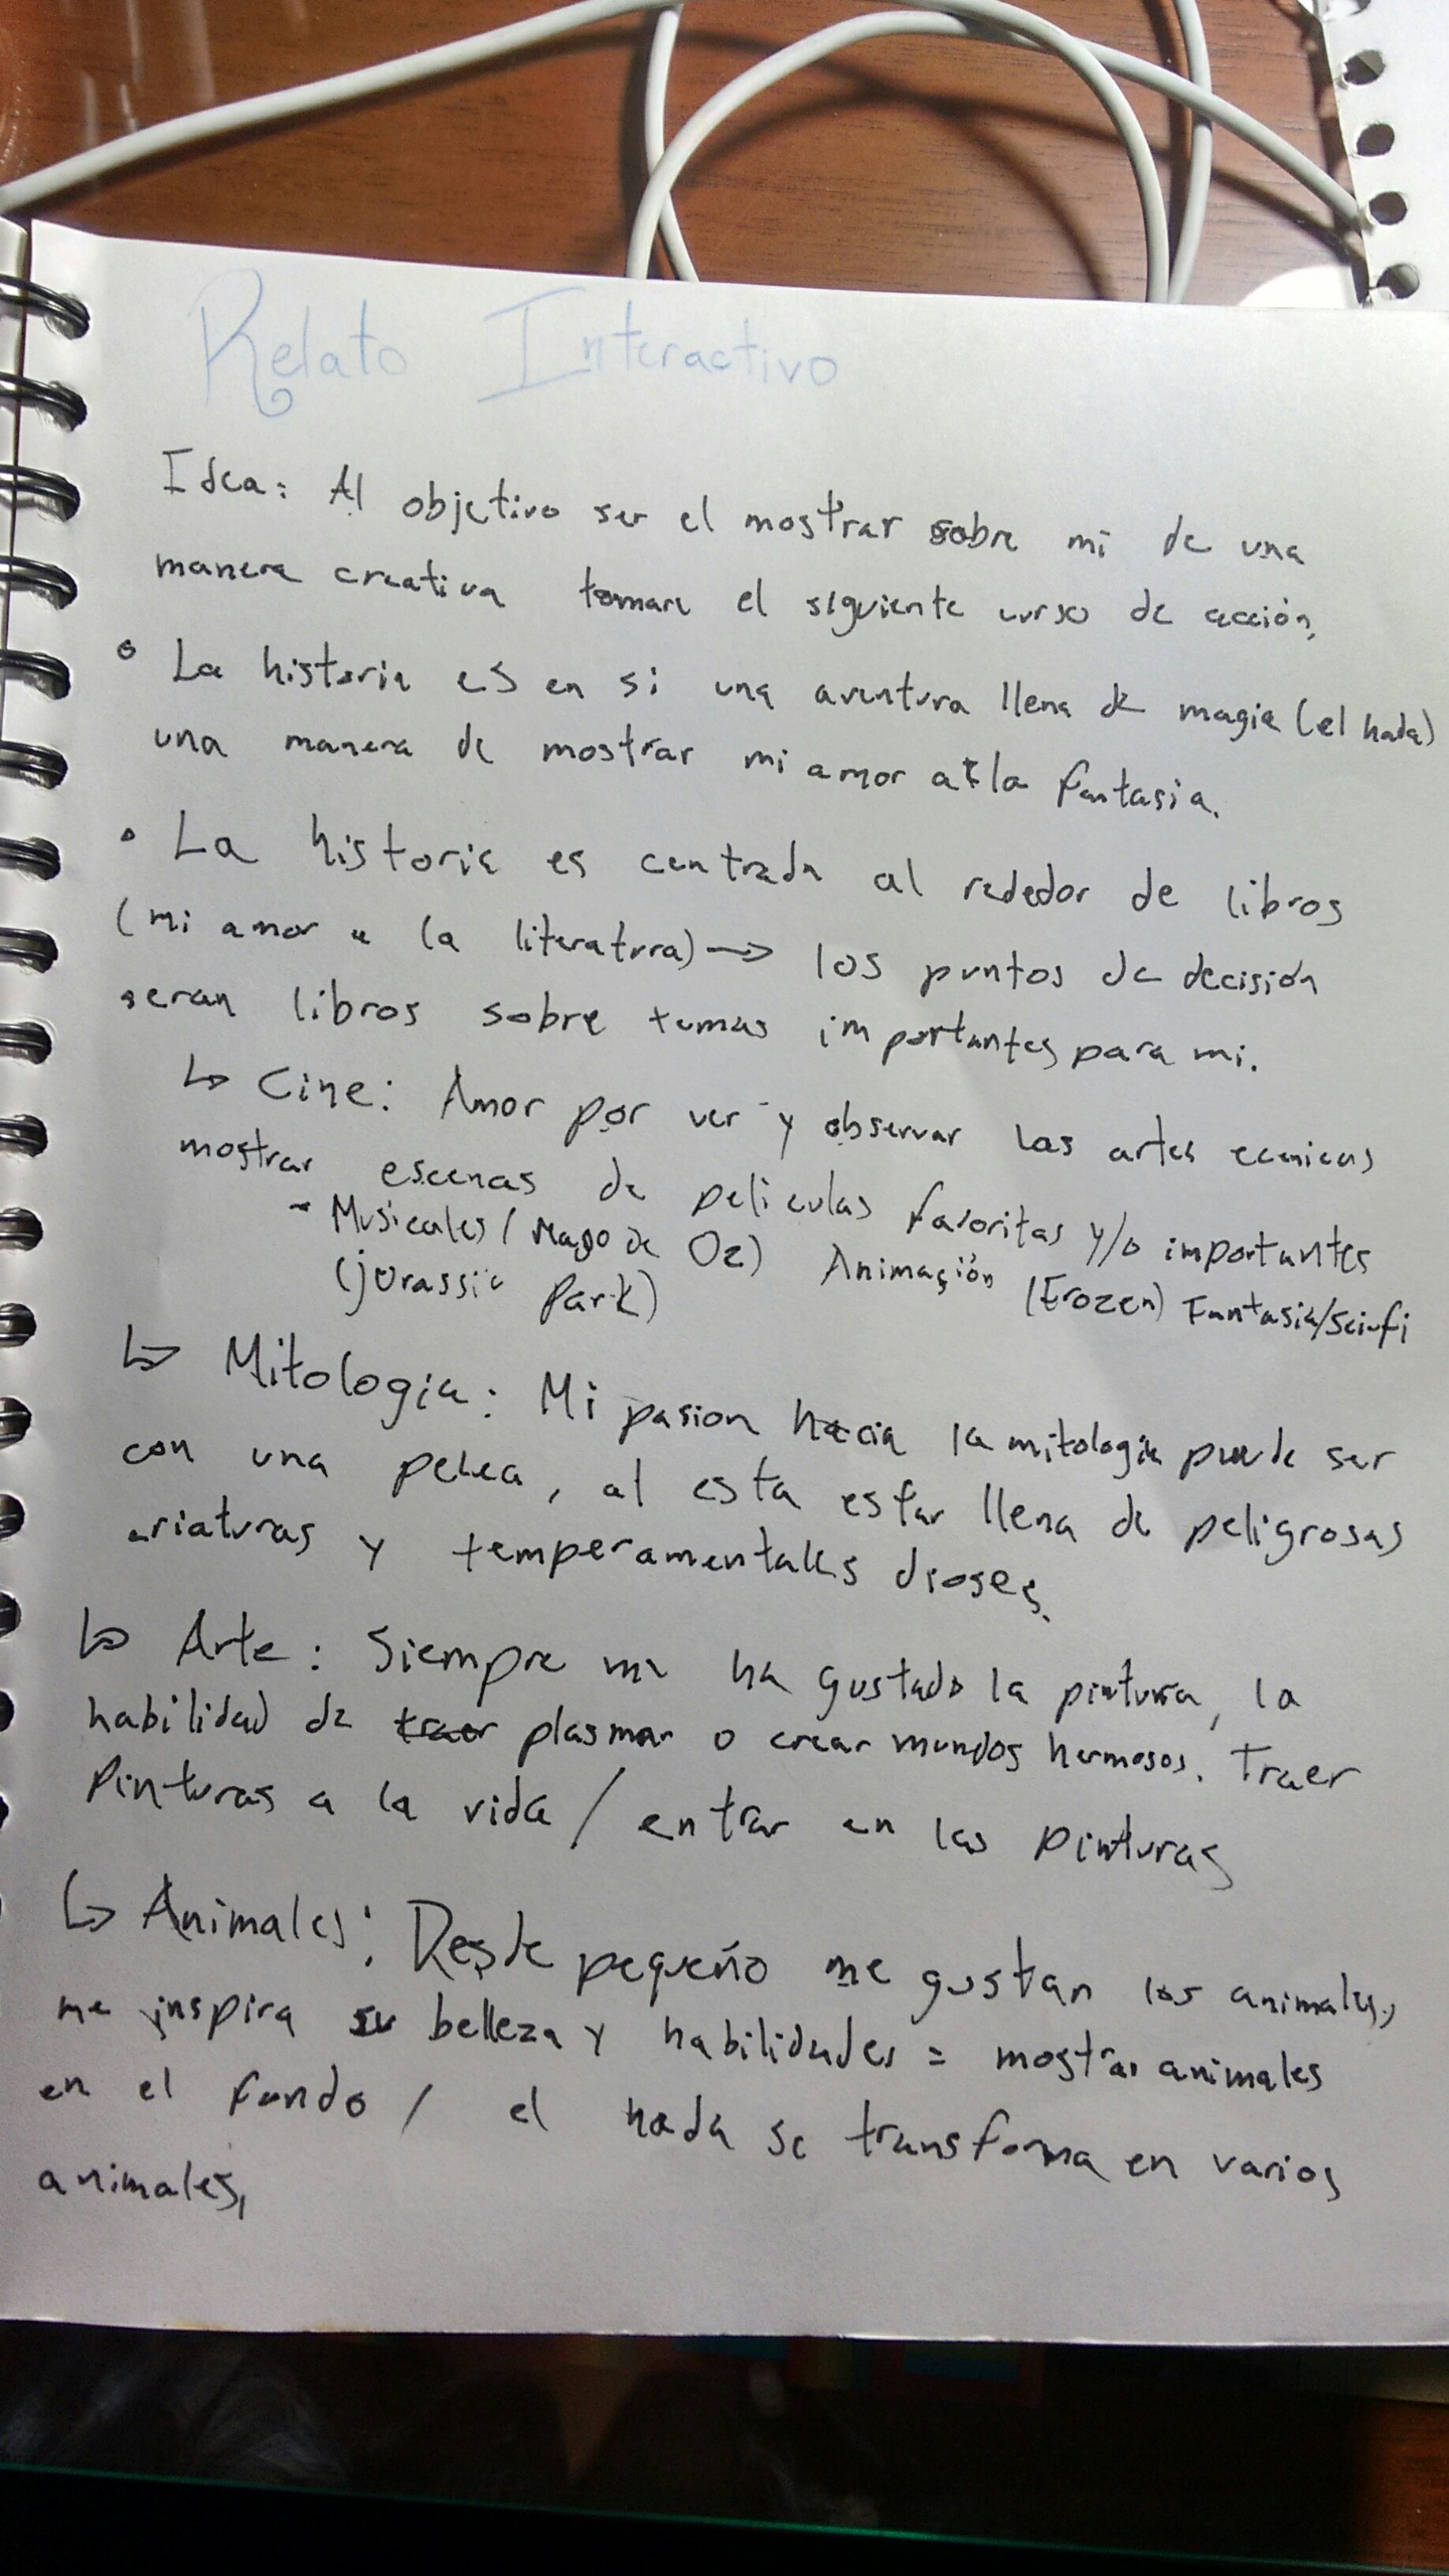 Relato Interactivo
Idea: Al objetivo ser el mostrar sobre mi de una
manera creativa tomare el siguiente curso de acción,
° La historia es en si una aventura llena de magia (el hada)
una manera de mostrar mi amor a la fantasia.
° La historia es centrada al rededor de libros
(mi amor a la literatura) → los puntos de decisión
seran libros sobre temas importantes para mi.
↳ Cine: Amor por ver y observar las artes ecenicas
mostrar escenas de peliculas favoritas y/o importantes
- Musicales (Mago de Oz) Animación (Frozen) Fantasia/Sci-fi
(jurassic Park)
↳ Mitologia: Mi pasion hacia la mitologia puede ser
con una pelea, al esta estar llena de peligrosas
criaturas y temperamentales dioses.
↳ Arte: Siempre me ha gustado la pintura, la
habilidad de traer plasmar o crear mundos hermosos. Traer
Pinturas a la vida / entrar en las pinturas
↳ Animales: Desde pequeño me gustan los animales,
me inspira su belleza y habilidades = mostrar animales
en el fondo / el hada se transforma en varios
animales,